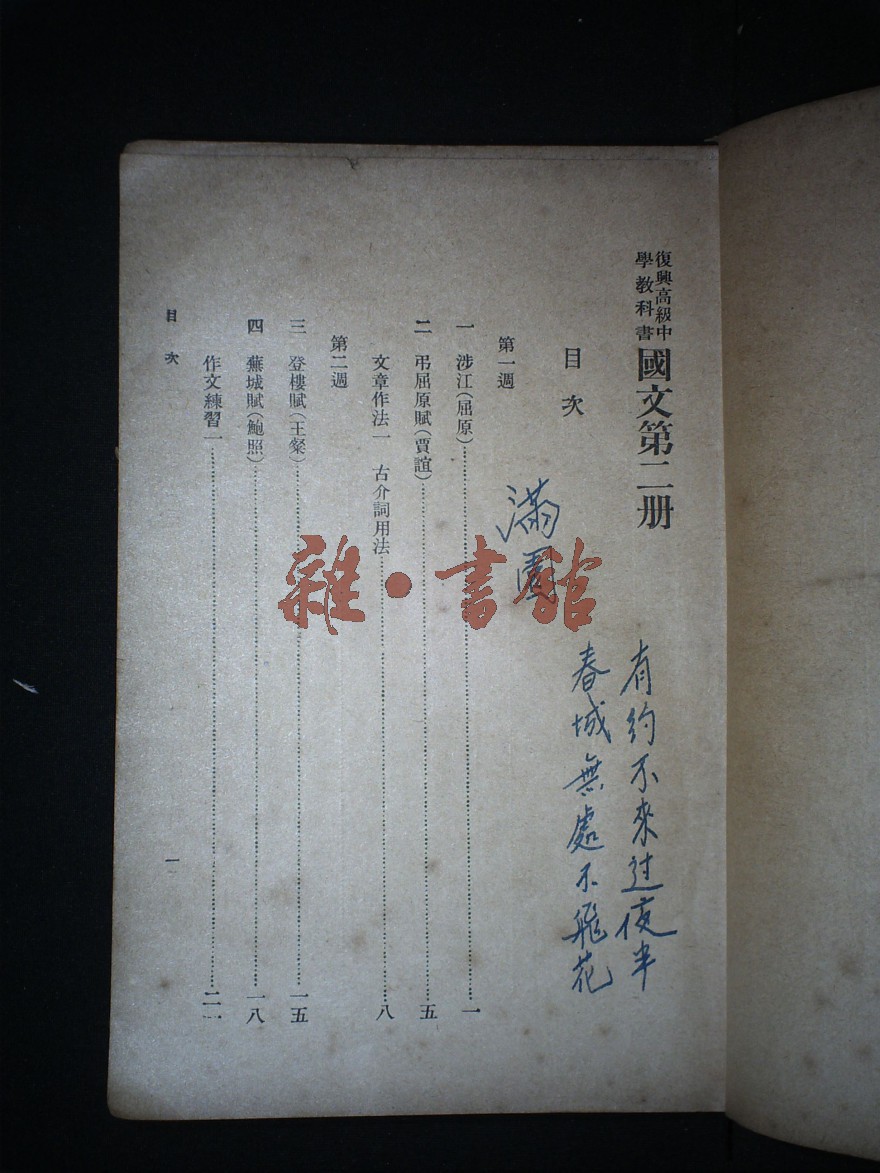 復興高級中
學教科書
國文第二册
目次
有約不來过夜半
春城無處不飛花
滿園
第一週
一 涉江(屈原)……一
二 弔屈原賦(賈誼)……五
文章作法一 古介詞用法……八
第二週
三 登樓賦(王粲)……一五
四 蕪城賦(鮑照)……一八
作文練習一……二一
目次 一
雜·書館